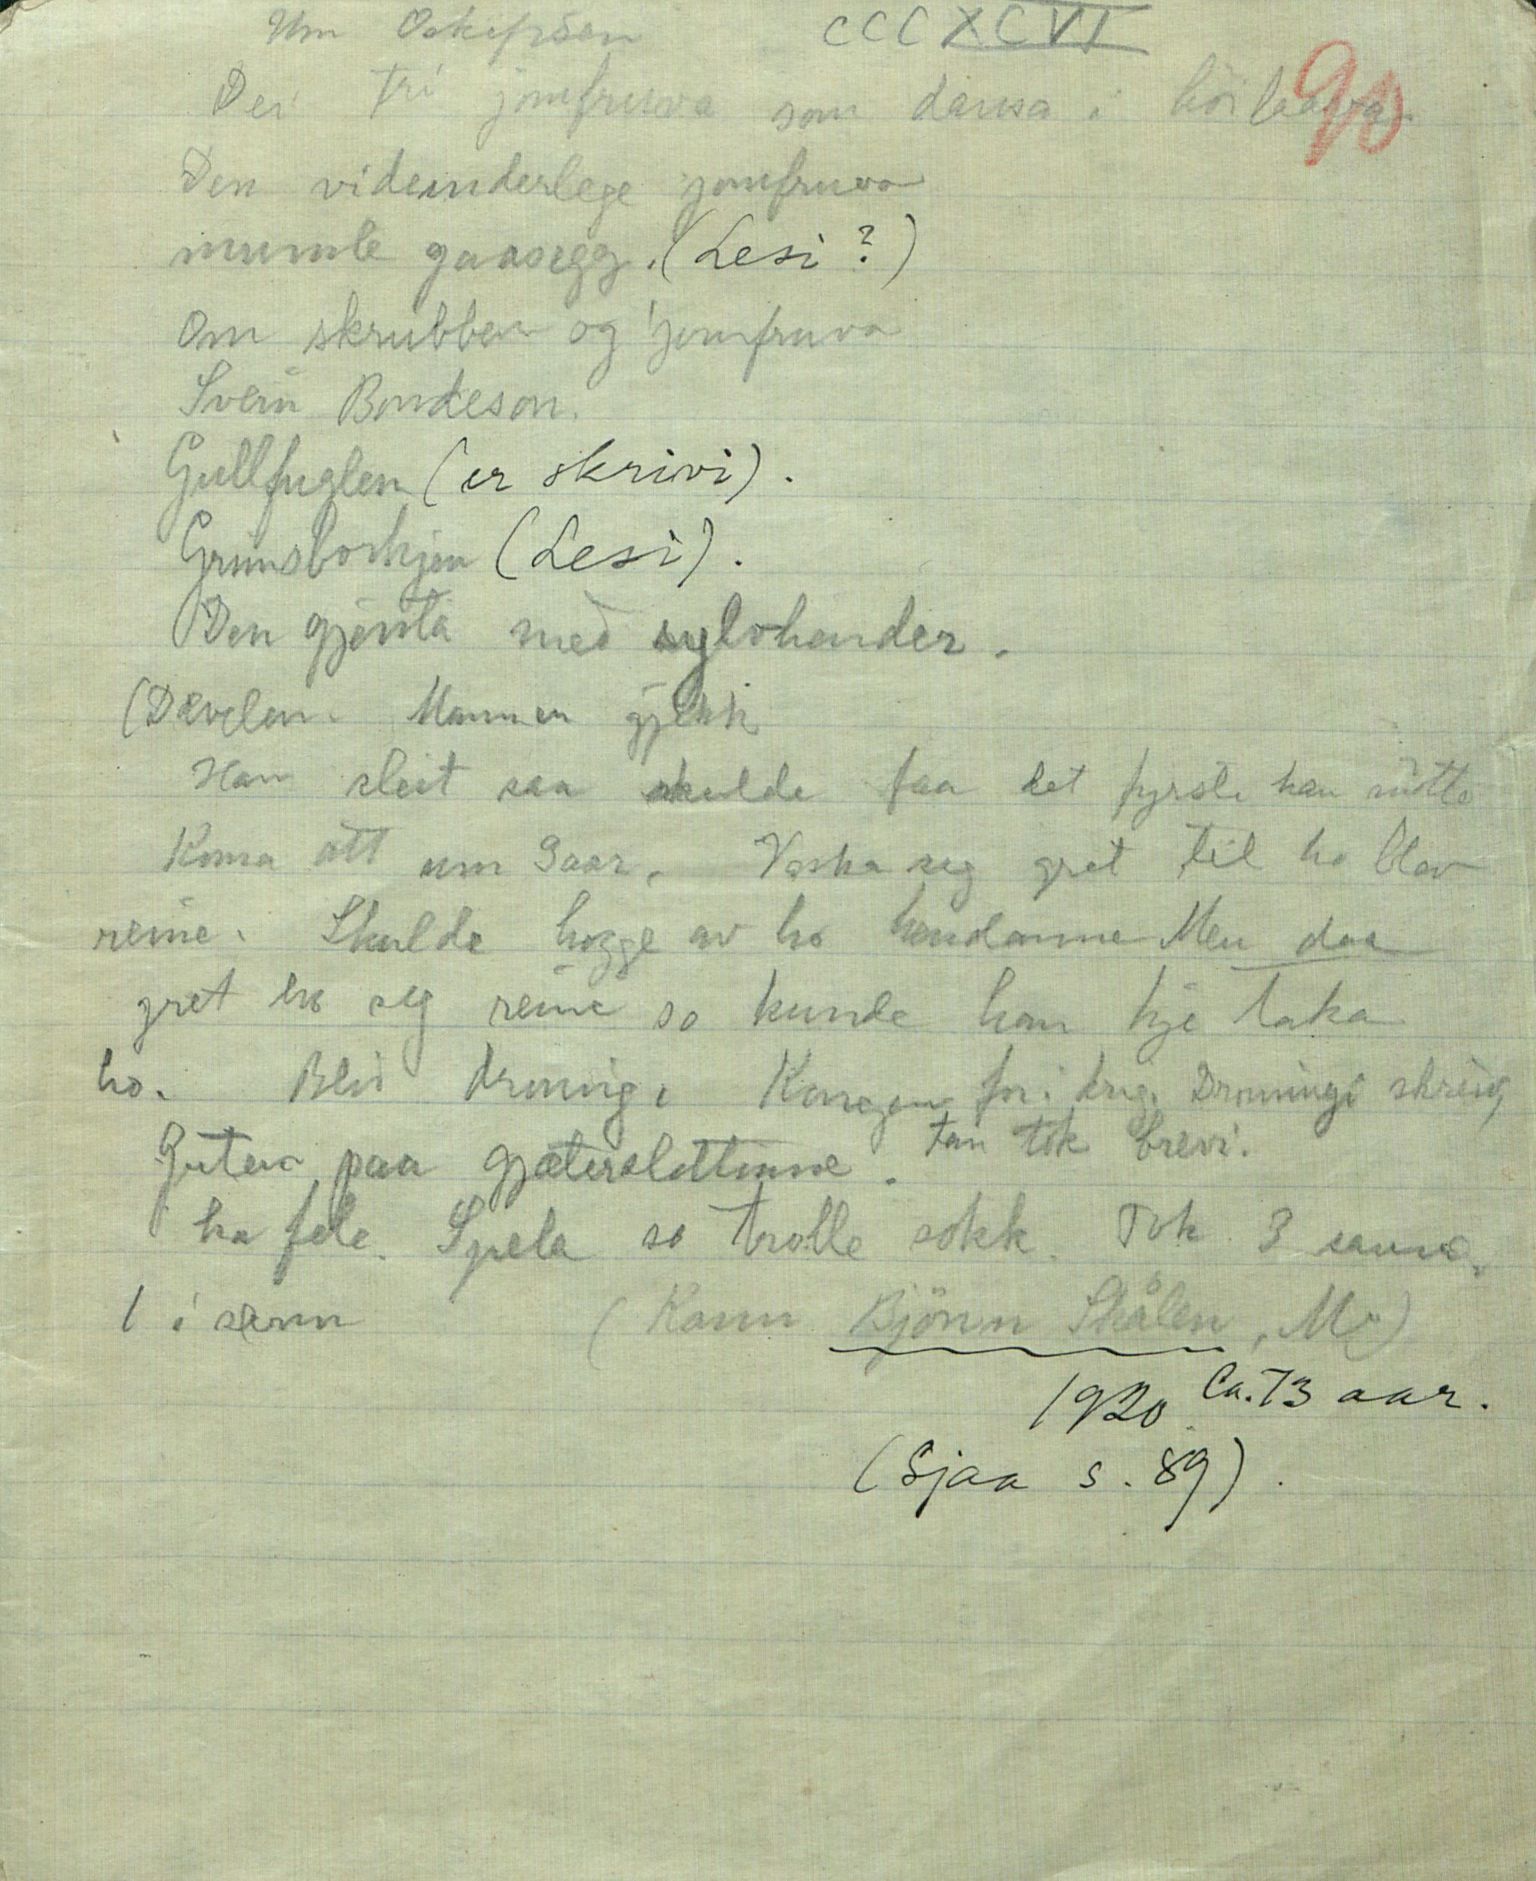 Um Oskefisen CCCXCVI
90
Dei tri jomfruva som dansa i höilaava.
Den videunderlege jomfruva
mumle gaasegg. (Lesi?)
Om skrubben og jomfruva
Svein Bondeson.
Gullfuglen (er skrivi).
Grimsborkjen (Lesi).
Den gjenta med sylvhender.
(Dævelen. Mannen gjekk
Han sleit saa skulde faa det fyrste han mötte
Koma att um 3 aar. Vaska seg gret til ho blev
reine. Skulde hogge av ho hendanne Men daa
gret ho seg reine so kunde han kje taka
ho. Blei droning. Kongen for i krig. Droningi skreiv,
Guten paa gjæterslottinne. Fan tok brevi.
ha fele. Spela so trolle sokk. Tok 3 sauva,
1 i senn (Kann Björnn Skålen, Mo)
1920 Ca. 73 aar.
(Sjaa s. 89).